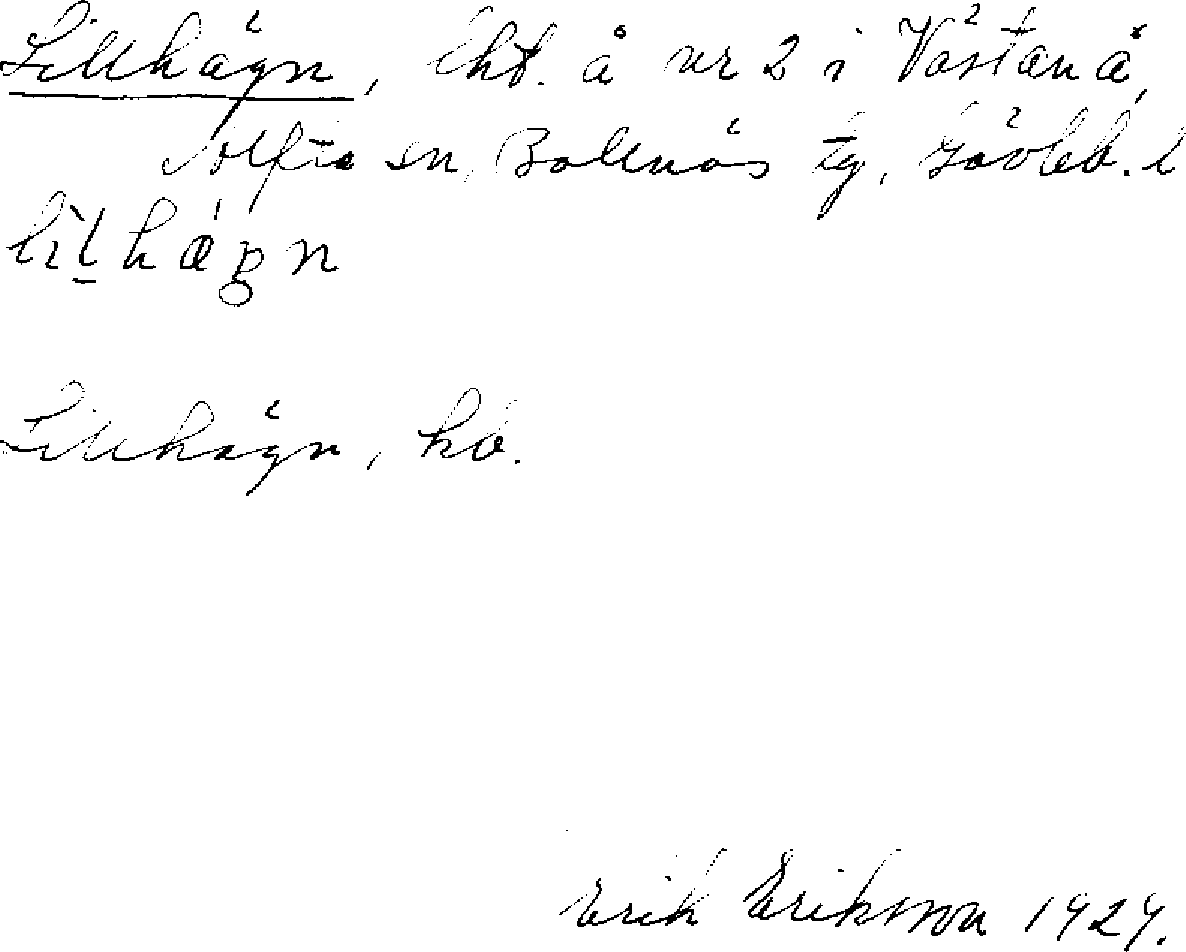 Lillhägn, lht. å nr 2 i Västanå,
Alfta sn, Bollnäs tg, Gävleb. l
Lillhägn, hd.
Erik Eriksson 1929.